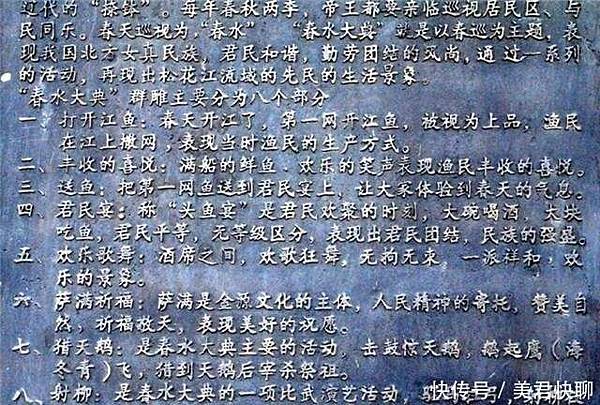 辽代的“捺钵”。每年春秋两季，帝王都要亲临巡视居民区、与
民同乐。春天巡视为“春水”　“春水大典”就是以春巡为主题，表
现我国北方女真民族，君民和谐，勤劳团结的风尚，通过一系列
的活动，再现出松花江流域的先民的生活景象。
“春水大典”群雕主要分为八个部分
一、打开江鱼：春天开江了，第一网开江鱼，被视为上品，渔民
在江上撒网，表现当时渔民的生产方式。
二、丰收的喜悦：满船的鲜鱼、欢乐的笑声表现渔民丰收的喜悦。
三、送鱼：把第一网鱼送到君民宴上，让大家体验到春天的气息。
四、君民宴：称“头鱼宴”是君民欢聚的时刻，大碗喝酒，大块
吃鱼，君民平等，无等级区分，表现出君民团结，民族的强盛。
五、欢乐歌舞：酒席之间，欢歌狂舞，无拘无束，一派祥和，欢
乐的景象。
六、萨满祈福：萨满是金源文化的主体，人民精神的寄托，赞美自
然，祈福敬天，表现美好的祝愿。
七、猎天鹅：是春水大典主要的活动，击鼓惊天鹅，纵起鹰（海
冬青）飞，猎到天鹅后宰杀祭祖。
八、射柳：是春水大典的一项比武演艺活动，
快传号／美君快聊